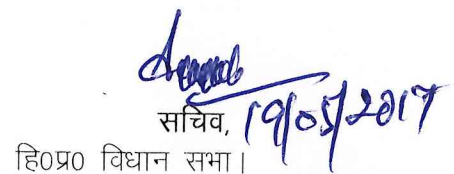 सचिव, 19/05/2017
हि0प्र0 विधान सभा।